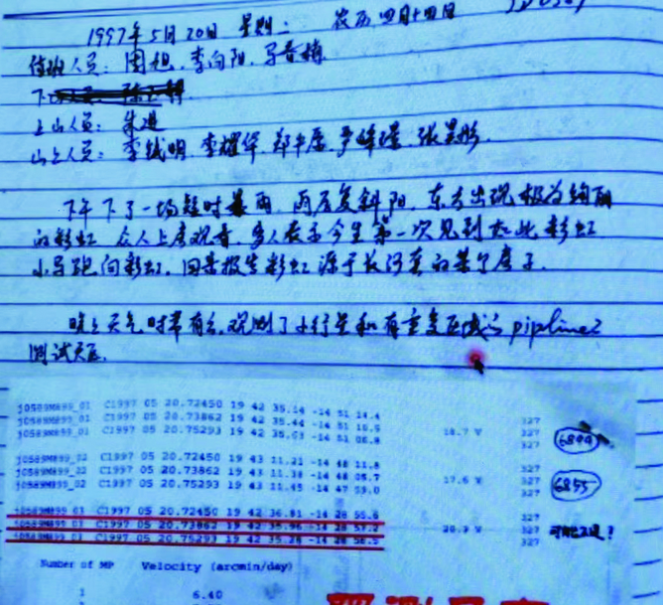 1997年5月20日 星期二 农历四月十四日
值班人员: 周旭, 李向阳, 马晋梅
上山人员: 朱进
山上人员: 李铁明, 李耀华, 郑
下午下了一场短时暴雨, 雨后复斜阳, 东方出现极为绚丽
的彩虹 众人上房观看, 多人表示今生第一次见到如此彩虹
小马跑向彩虹, 回来报告彩虹源于长河套的某个房子.
晚上天气时常有云, 观测了小行星和有重复区域的pipline2
测试天区.
j0589M899_01 C1997 05 20.72450 19 42 35.54 -14 51 14.4 327
j0589M899_01 C1997 05 20.73862 19 42 35.44 -14 51 10.5 18.7 V 327 6894
j0589M899_01 C1997 05 20.75293 19 42 35.03 -14 51 327
j0589M899_02 C1997 05 20.72450 19 43 11.21 -14 48 11.8 327
j0589M899_02 C1997 05 20.73862 19 43 11.38 -14 48 05.7 17.6 V 327 6855
j0589M899_02 C1997 05 20.75293 19 43 11.45 -14 47 59.0 327
j0589M899_03 C1997 05 20.72450 19 42 36.81 -14 28 55.6 327
j0589M899_03 C1997 05 20.73862 19 42 -14 28 57.2 20.3 V 327
j0589M899_03 C1997 05 20.75293 19 42 35.28 -14 28 327
Number of MP Velocity (arcmin/day)
1 6.40